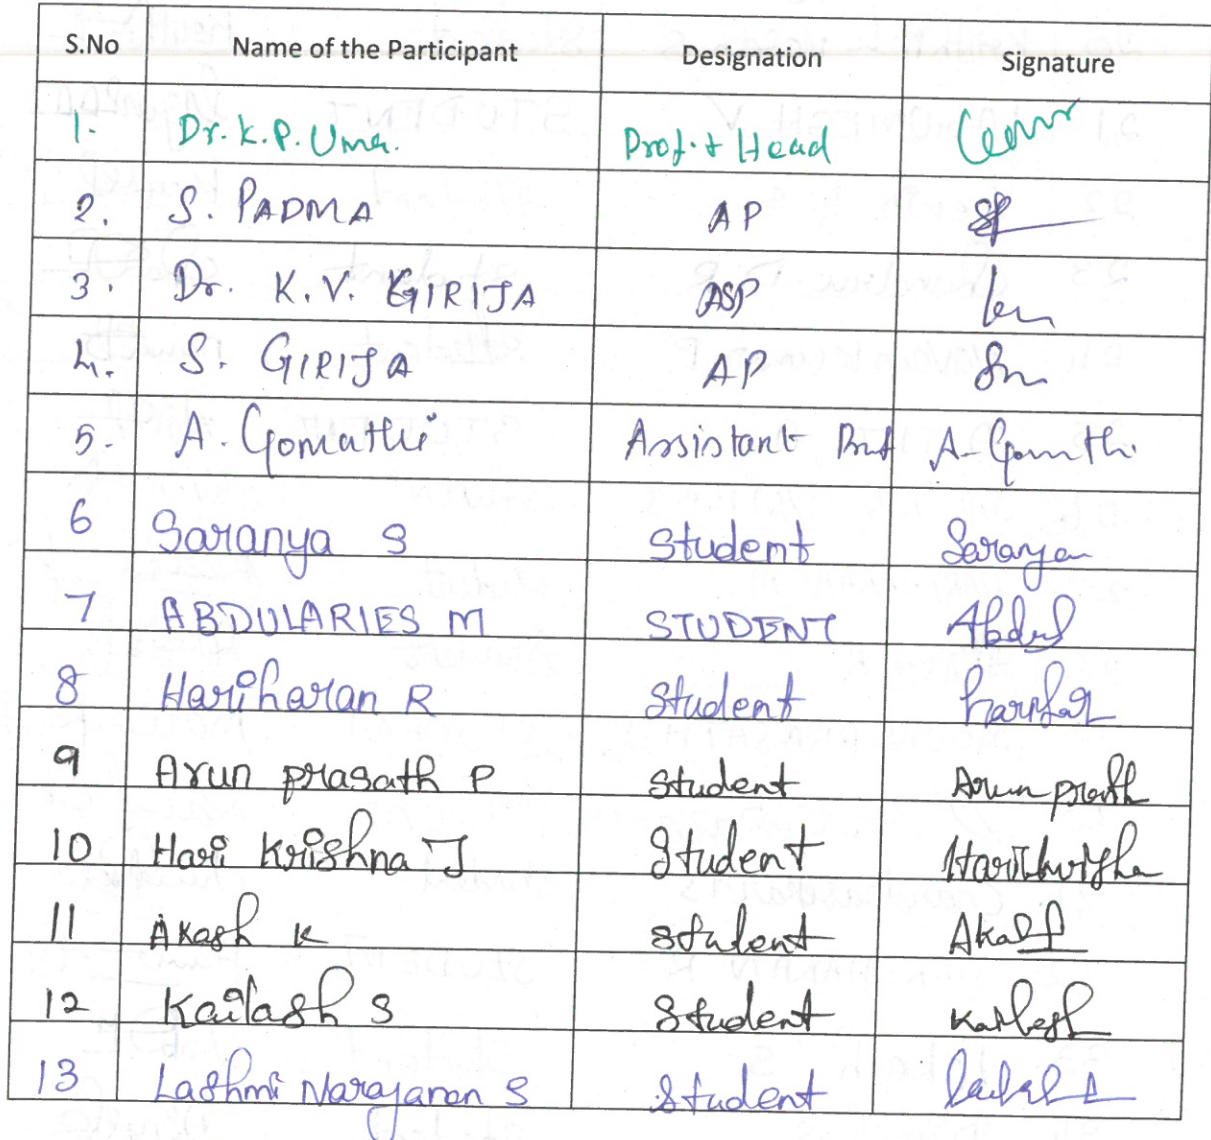 S.No Name of the Participant Designation Signature
1. Dr. K. P. Uma. Prof. & Head
2. S. PADMA AP
3. Dr. K. V. GIRIJA ASP
4. S. GIRIJA AP
5. A. Gomathi Assistant Prof A. Gomathi
6 Saranya S Student Saranya
7 ABDULARIES M STUDENT Abdul
8 Hariharan R Student
9 Arun prasath P Student Arun
10 Hari Krishna J Student Harikrishna
11 Akash K Student Akash
12 Kailash S Student Kailash
13 Lashmi Narayanan S Student